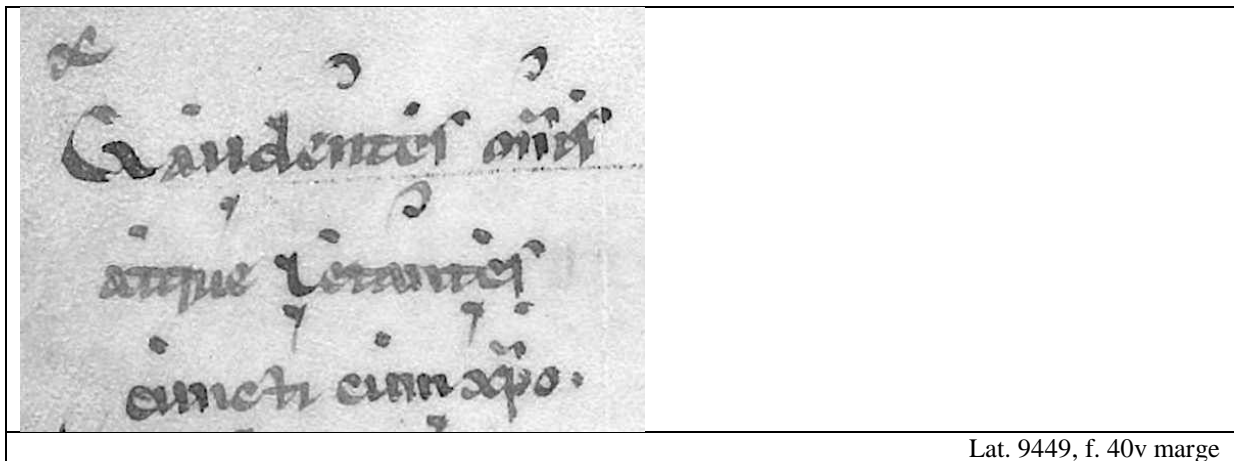 Gaudentes om̅s
atque letantes
cuncti cum xp̅o.
Lat. 9449, f. 40v marge